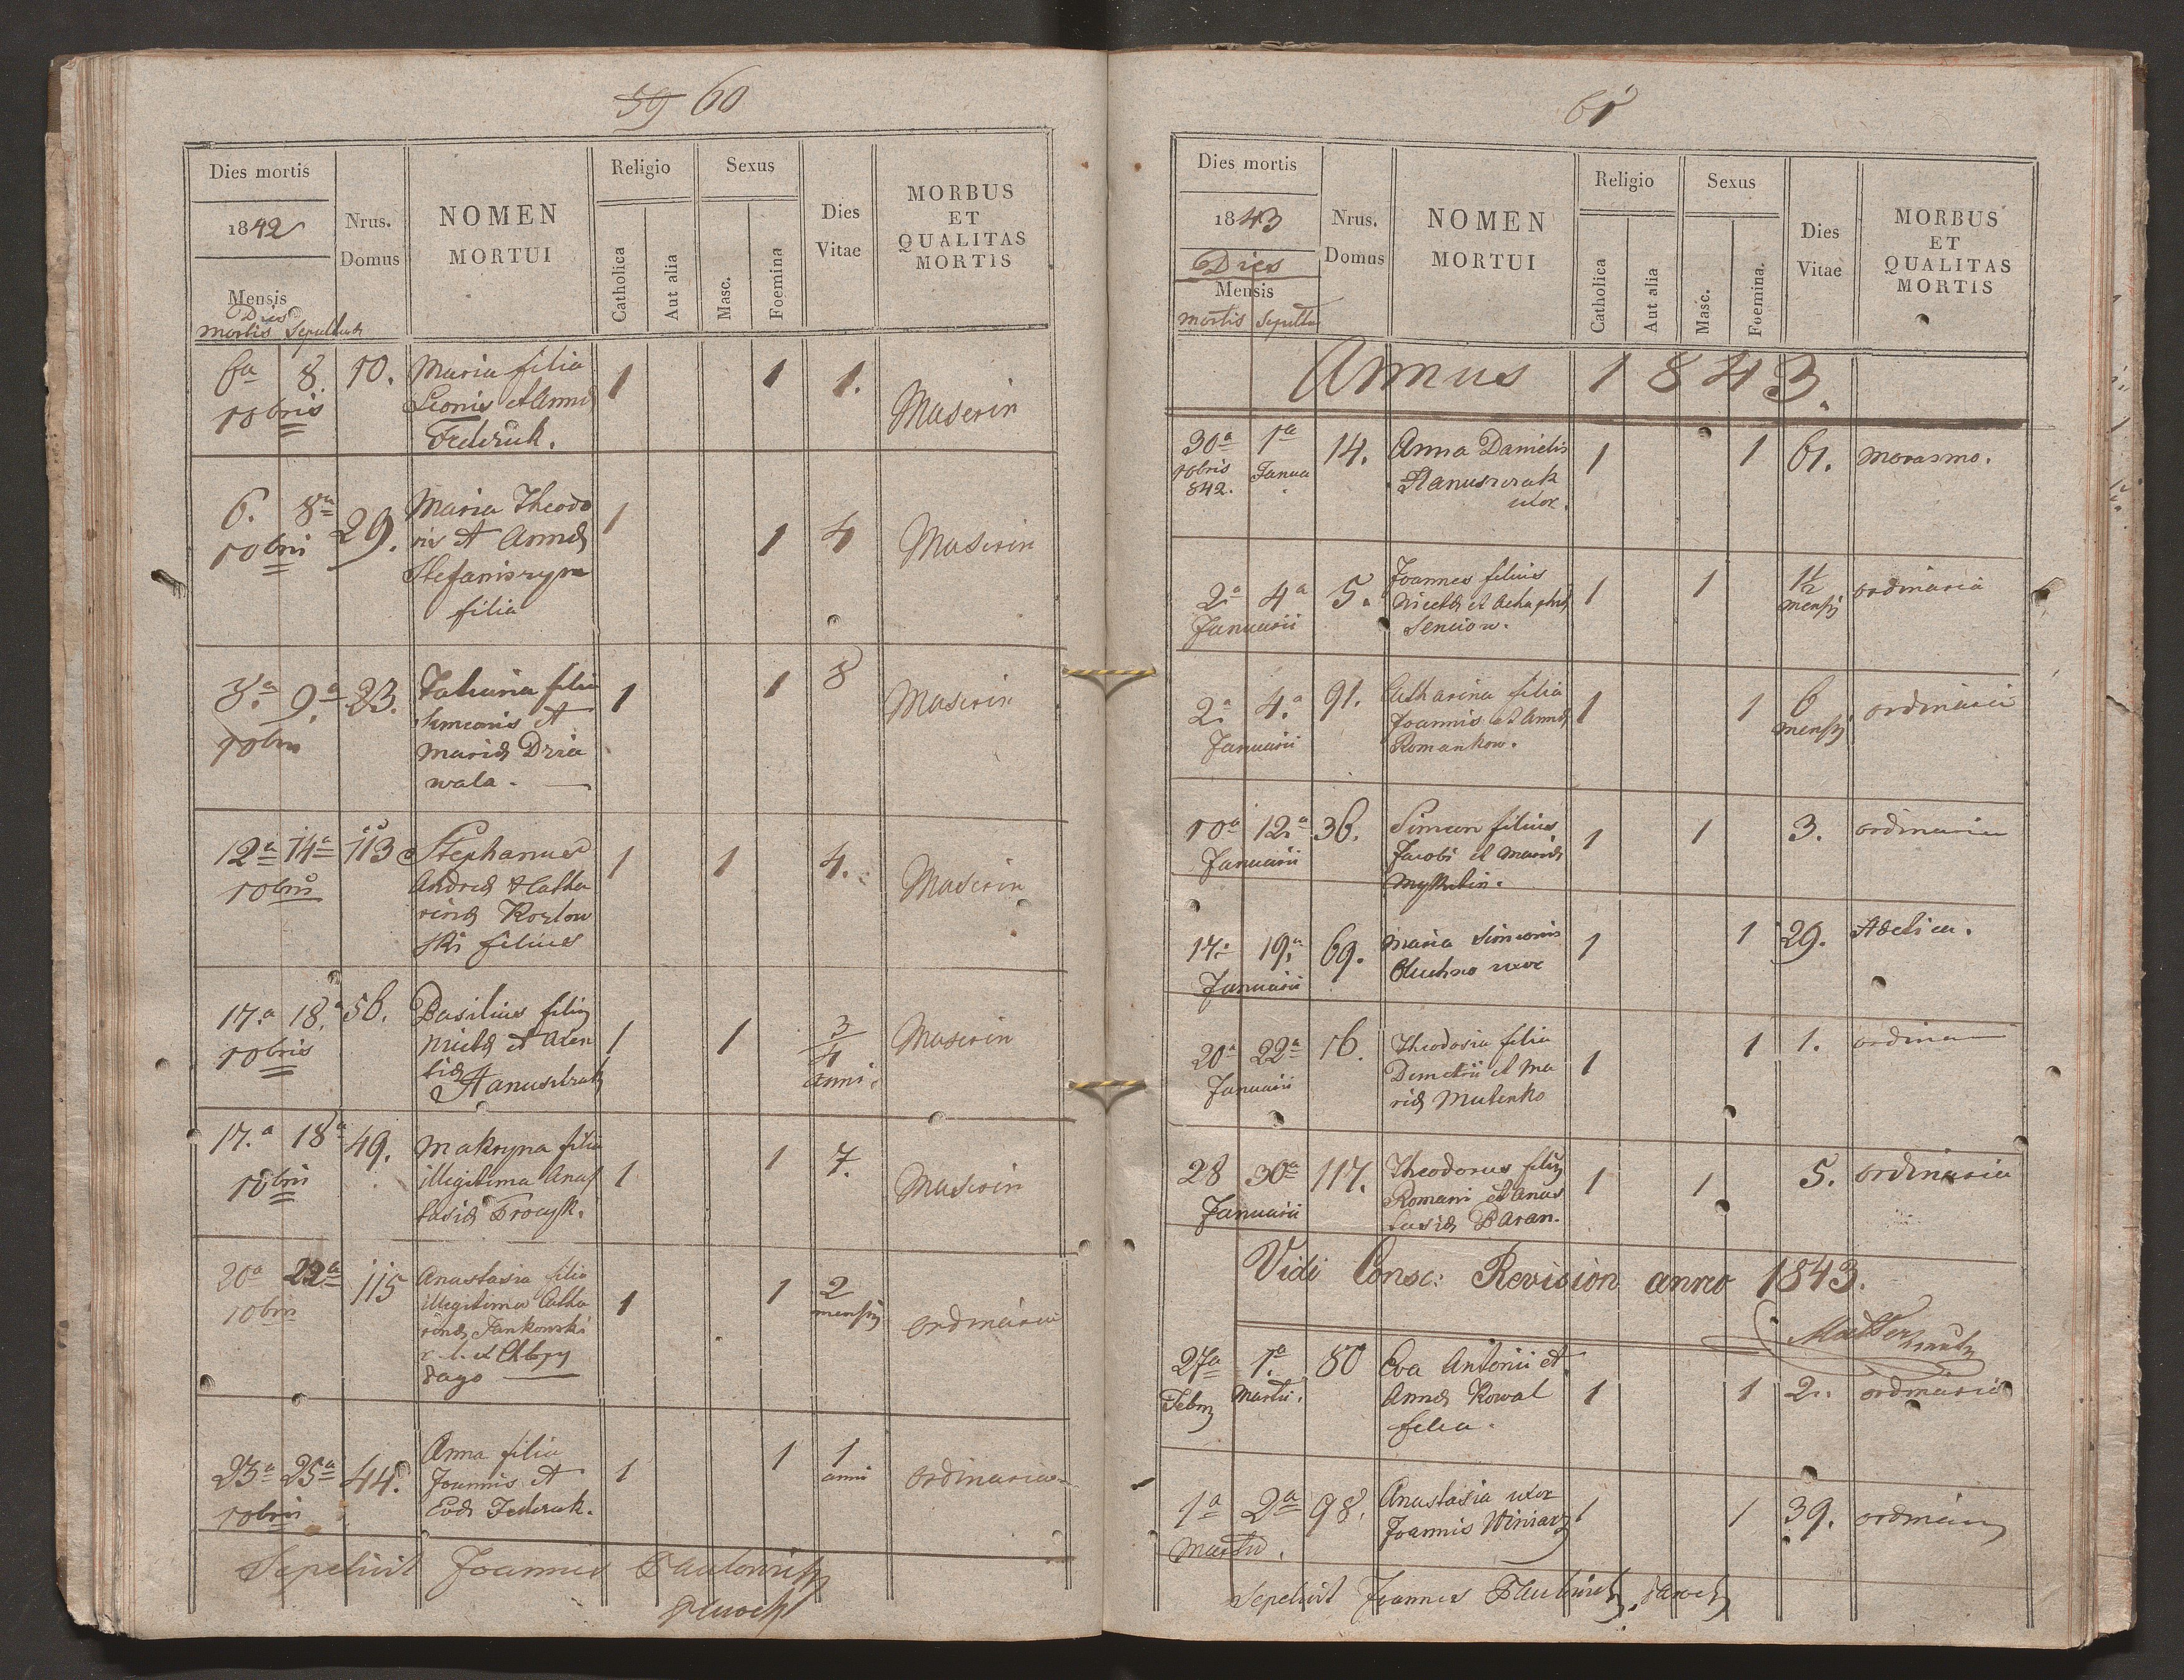 59 60
Dies mortis
1842
Mensis
Dies
mortis Sepultura
Nrus.
Domus
NOMEN
MORTUI
Religio
Catholica
Aut alia
Sexus
Masc.
Foemina
Dies
Vitae
MORBUS
ET
QUALITAS
MORTIS
6a 8. 10. Maria filia 1 1 1.
10bris Leonis et Annæ Maserin
Federuk.
6. 8va 29. Maria Theodo 1 1 4
10bris ris et Annæ Maserin
Stefaniszyn
filia
8.a 9.a 23. Tatiana filia 1 1 8
10bris Simeonis et Maserin
Mariæ Dzia
wala.
12a 14a 113 Stephanus 1 1 4.
10bris Andreæ et Catha Maserin
rinæ Kozlow
ski filius
17.a 18.a 56. Basilius filius 1 1 3/4
10bris Nicetæ et Maserin
anni.
Hanuszczak
17.a 18a 49. Makryna filia 1 1 7.
10bris illegitima Anas Maserin
tasiæ Procyk.
20a 22a 115 Anastasia filia 1 1 2
10bris illegitima Catha mensis ordinaria
rinæ Jankowski
dago
23a 25a 44. Anna filia 1 1 1
10bris Joannis et anni ordinaria
Evæ Federuk.
Sepelivit Joannes
61
Dies mortis
1843
Dies
Mensis
mortis Sepultu
Nrus.
Domus
NOMEN
MORTUI
Religio
Catholica
Aut alia
Sexus
Masc.
Foemina.
Dies
Vitae
MORBUS
ET
QUALITAS
MORTIS
Annus 1843.
30a 1a 14. Anna Danielis 1 1 61. Marasmo.
10bris Janua Hanuszczak
842. uxor.
2a 4a 5. Joannes filius 1 1 1½ ordinaria
Januarii Nicetæ et Agaphiæ mensis
Senciow.
2a 4.a 91. Catharina filia 1 1 6 ordinaria
Januarii Joannis et Annæ mensis
Romankow.
10a 12a 36. Simeon filius 1 1 3. ordinaria
Januarii Jacobi et Mariæ
Mykitin.
17a 19a 69. Maria Simeonis 1 1 29.
Januarii uxor
20a 22a 16. Theodosia filia 1 1 1. ordina
Januarii Demetrii et Ma
riæ Mutenko
28 30a 117. Theodorus filius 1 1 5. ordinaria
Januarii Romani et Anas
tasiæ Baran.
Vidi Consc: Revision anno 1843.
27a 1a 80 Eva Antonii et 1 1 2. ordinaria
Febr Martii. Annæ Kowal
filia.
1a 2a 98. Anastasia uxor 1 1 39. ordinaria
Martii. Joannis Winiarz
Sepelivit Joannes